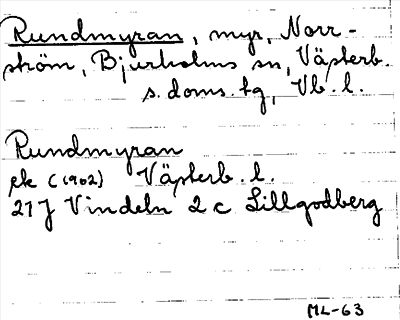 Rundmyran, myr, Norr-
ström, Bjurholms sn, Västerb.
s. doms. tg, Vb. l.
Rundmyran
ek (1902) Västerb. l.
21J Vindeln 2 c Lillgodberg
ML-63